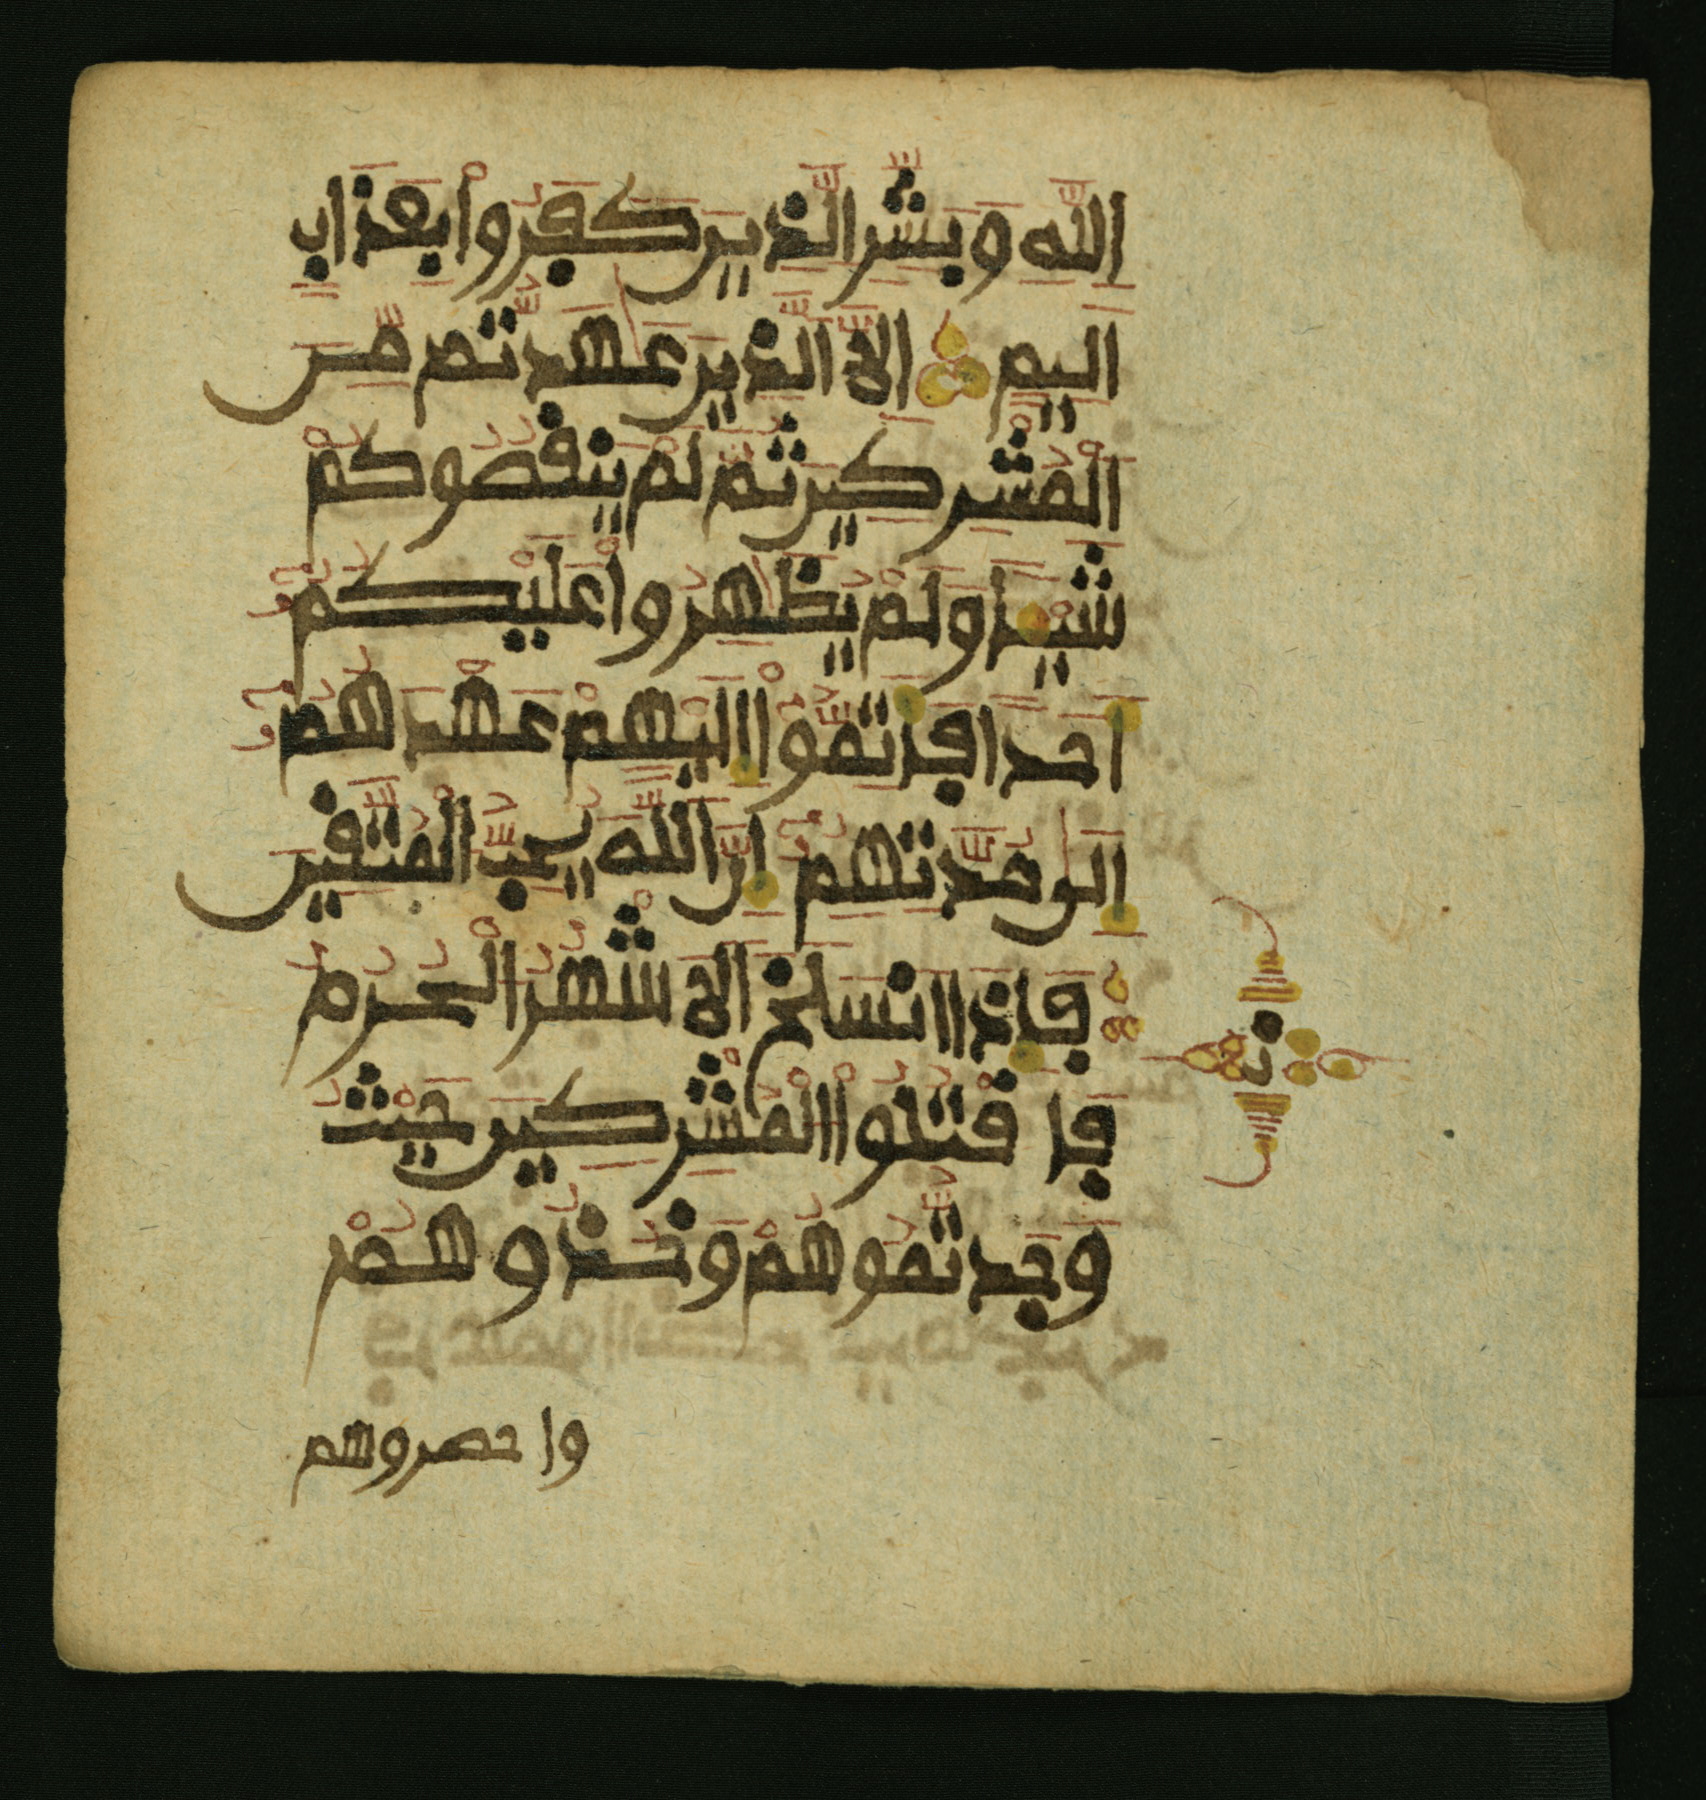 الله وبشر الذين كفروا بعذاب
اليم الا الذين عهدتم من
المشركين ثم لم ينقصوكم
شيـا ولم يظهروا عليكم
احدا فاتموا اليهم عهدهم
الى مدتهم ان الله يحب المتقين
فاذا انسلخ الا شهر الحرم
فا قتلوا المشركين حيث
وجدتموهم وخذوهم
وا حصروهم